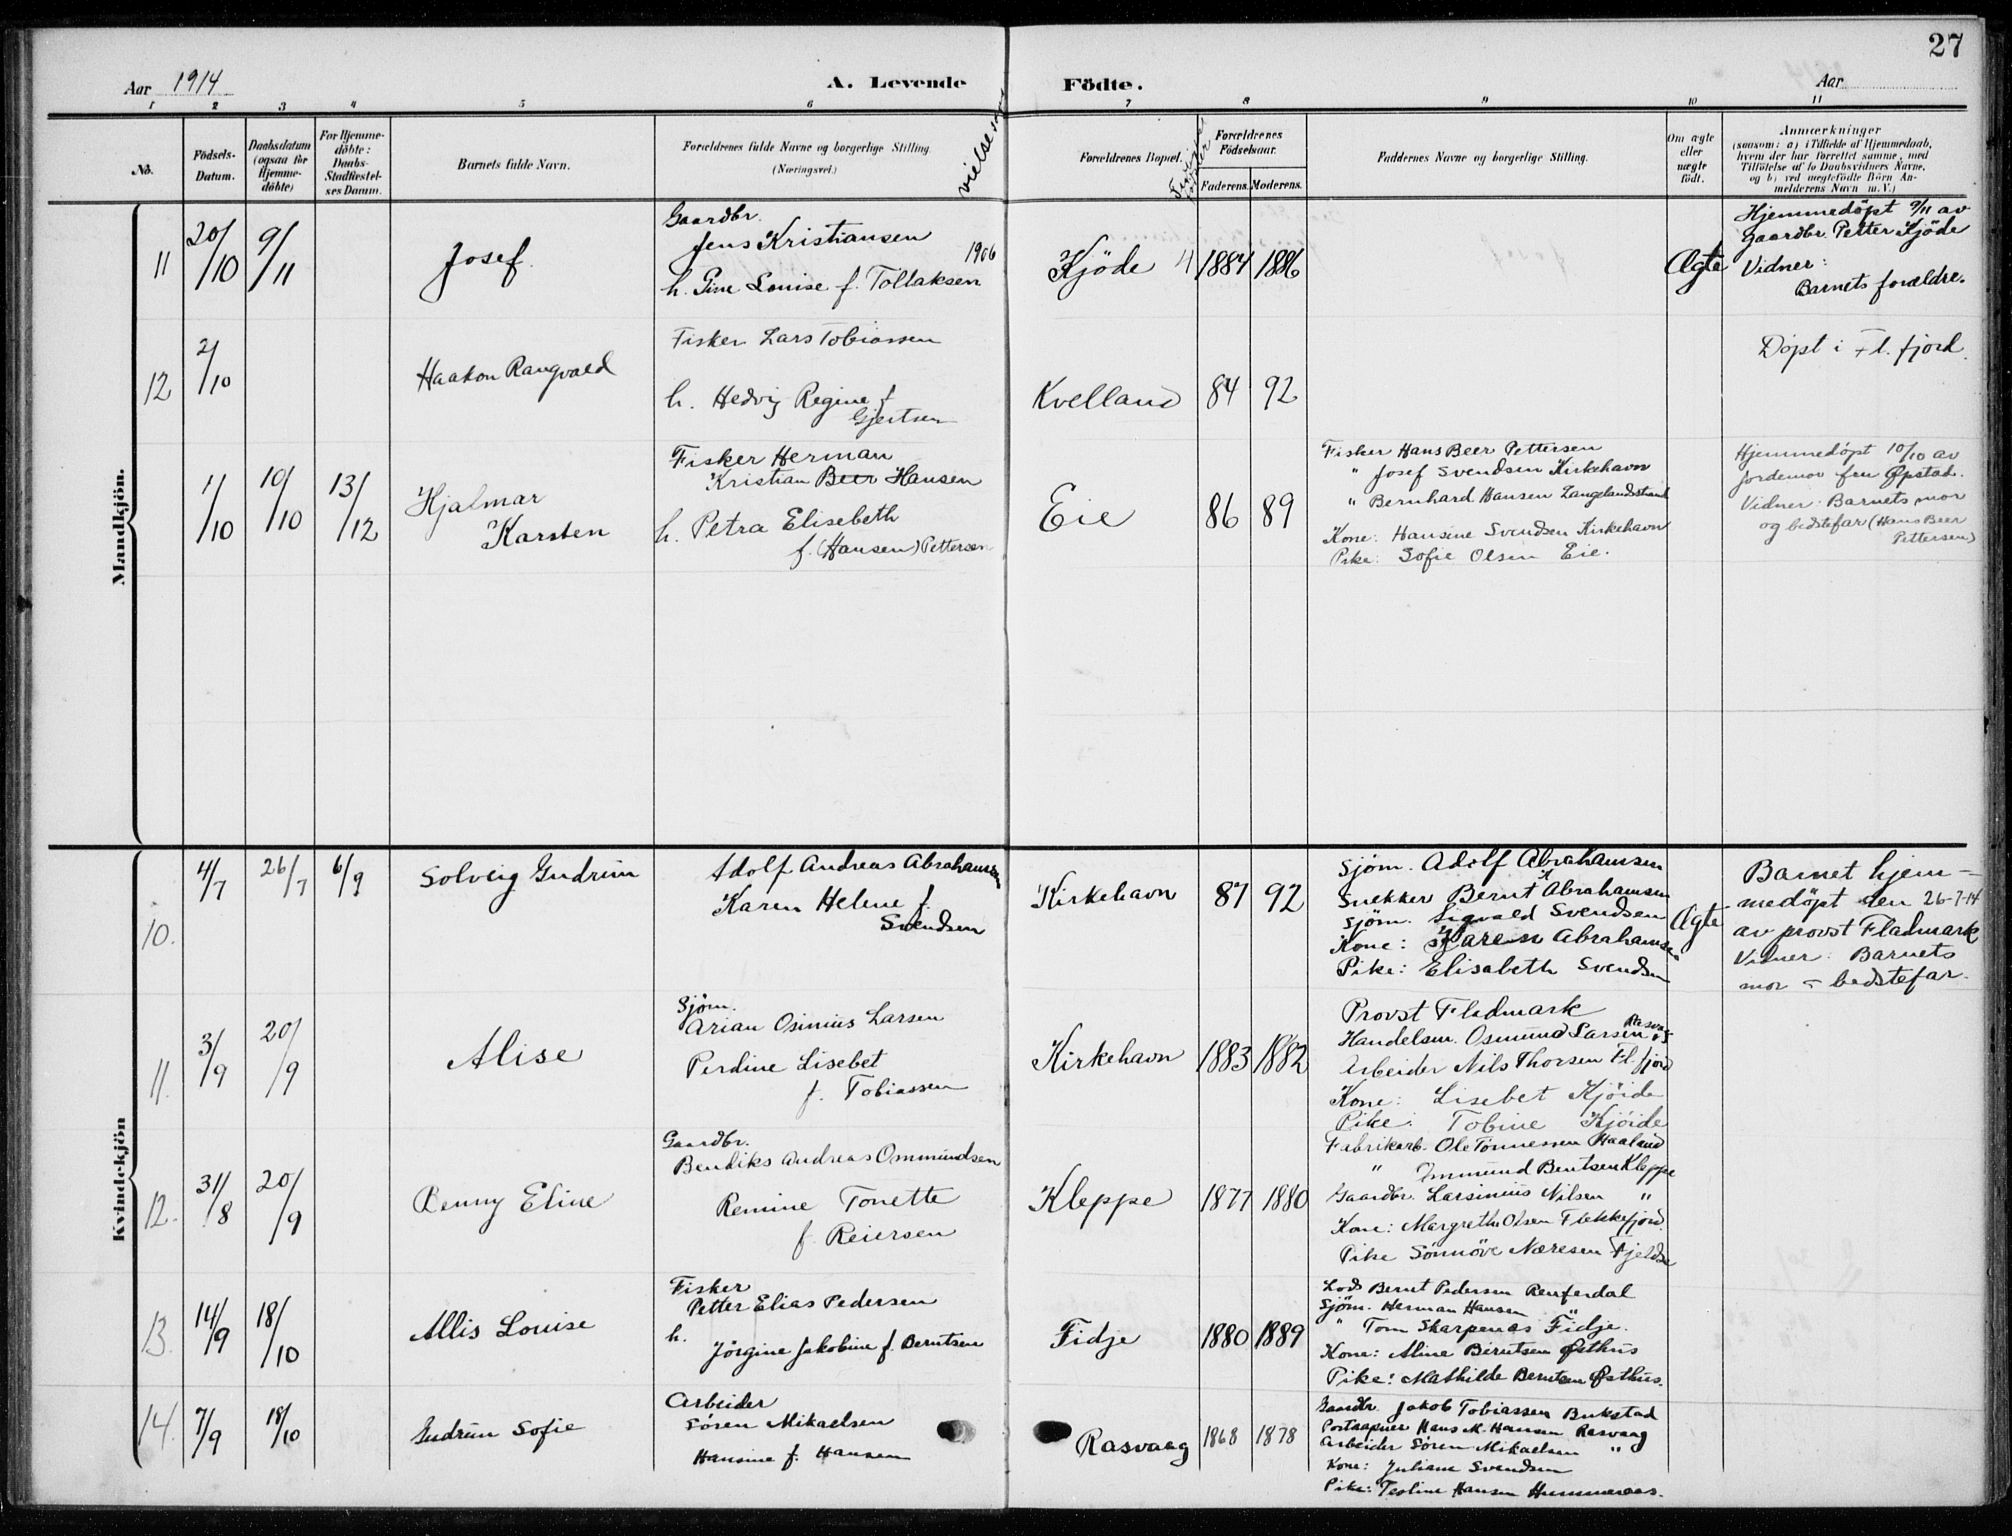 27
Aar 1914
A. Levende Födte.
Aar
1 2 3 4 5 6 7 8 9 10 11
No.
Födsels-
Datum.
Daabsdatum
(ogsaa for
Hjemme-
döbte)
For Hjemme-
döbte:
Daabs-
Stadfæstel-
ses Datum.
Barnets fulde Navn.
Forældrenes fulde Navne og borgerlige Stilling
(Næringsvei.)
vielses
Forældrenes Bopæl.
Forældrenes
Födselsaar.
Faderens. Moderens.
Faddernes Navne og borgerlige Stilling.
Om ægte
eller
uægte
födt.
Anmærkninger
(saasom: a) i Tilfælde af Hjemmedaab,
hvem der har forrettet samme, med
Tilföielse af to Daabsvidners Navne,
og b) ved uægtefödte Börn An-
melderens Navn m. V.)
Mandkjön.
11 20/10 9/11
Josef
Gaardbr.
Jens Kristiansen
1906
h. Gine Louise f. Tollaksen
Kjöde 4 1884 1886
Ægte
Hjemmedöpt 9/11 av
gaardbr. Petter Kjöde
Vidner:
Barnets forældre.
12 2/10
Haakon Rangvald
Fisker Lars Tobiassen
h. Hedvig Regine f
Gjertsen
Kvelland 84 92
Döpt i Fl. fjord.
1/10 10/10 13/12
Hjalmar
Karsten
Fisker Herman
Kristian Beer Hansen
h. Petra Elisebeth
f. (Hansen) Pettersen
Eie 86 89
Fisker Hans Beer Pettersen
" Josef Svendsen Kirkehavn
" Bernhard Hansen Langelandsstrand
Kone: Hansine Svendsen Kirkehavn
Pike: Sofie Olsen Eie.
Hjemmedöpt 10/10 av
jordemor fru Öpstad.
Vidner: Barnets mor
og bedstefar (Hans Beer
Pettersen)
Kvindekjön
10. 4/7 26/7 6/9
Solveig Gudrun
Adolf Andreas Abrahamsen
Karen Helene f.
Svendsen
Kirkehavn 87 92
Sjöm. Adolf Abrahamsen
Snekker Bernt A Abrahamsen
Sjöm. Sigvald Svendsen
Kone: Karen Abrahamsen
Pike: Elisabeth Svendsen
Ægte
Barnet hjem-
medöpt den 26-7-14
av provst Fladmark
Vidner: Barnets
mor - bedstefar.
11. 3/9 20/9
Alise
Sjöm.
Arian Osinius Larsen
Perdine Lisebet
f. Tobiassen
Kirkehavn 1883 1882
Provst Fladmark
Handelsm. Osmund Larsen Rasvaag
Arbeider Nils Thorsen Fl. fjord
Kone: Lisebet Kjöide
Pike: Tobine Kjöide
12. 31/8 20/9
Benny Eline
Gaardbr.
Bendiks Andreas Ommundsen
Remine Tonette
f. Reiersen
Kleppe 1877 1880
Fabrikarb. Ole Tönnessen Haaland
" Ommund Bentsen Kleppe
Gaardbr. Larsinius Nilsen "
Kone: Margrethe Olsen Flekkefjord.
Pike Sönnöve Næresen Fjeldse
13. 14/9 18/10
Allis Louise
Fisker
Petter Elias Pedersen
h.
Jörgine Jakobine f. Berntsen
Fidje 1880 1889
Lods Bernt Pedersen Renferdal
Sjöm. Herman Hansen
" Tom Skarpenas Fidje.
Kone: Aline Berntsen Östhus
Pike: Mathilde Berntsen Östhus.
14. 7/9 18/10
Gudrun Sofie
Arbeider
Sören Mikaelsen
Hansine f. Hansen
Rasvaag 1868 1878
Gaardbr. Jakob Tobiassen Bukstad
Postaapner Hans M. Hansen Rasvaag
Arbeider Sören Mikaelsen "
Kone: Juliane Svendsen
Pike: Teoline Hansen Hummeraas.